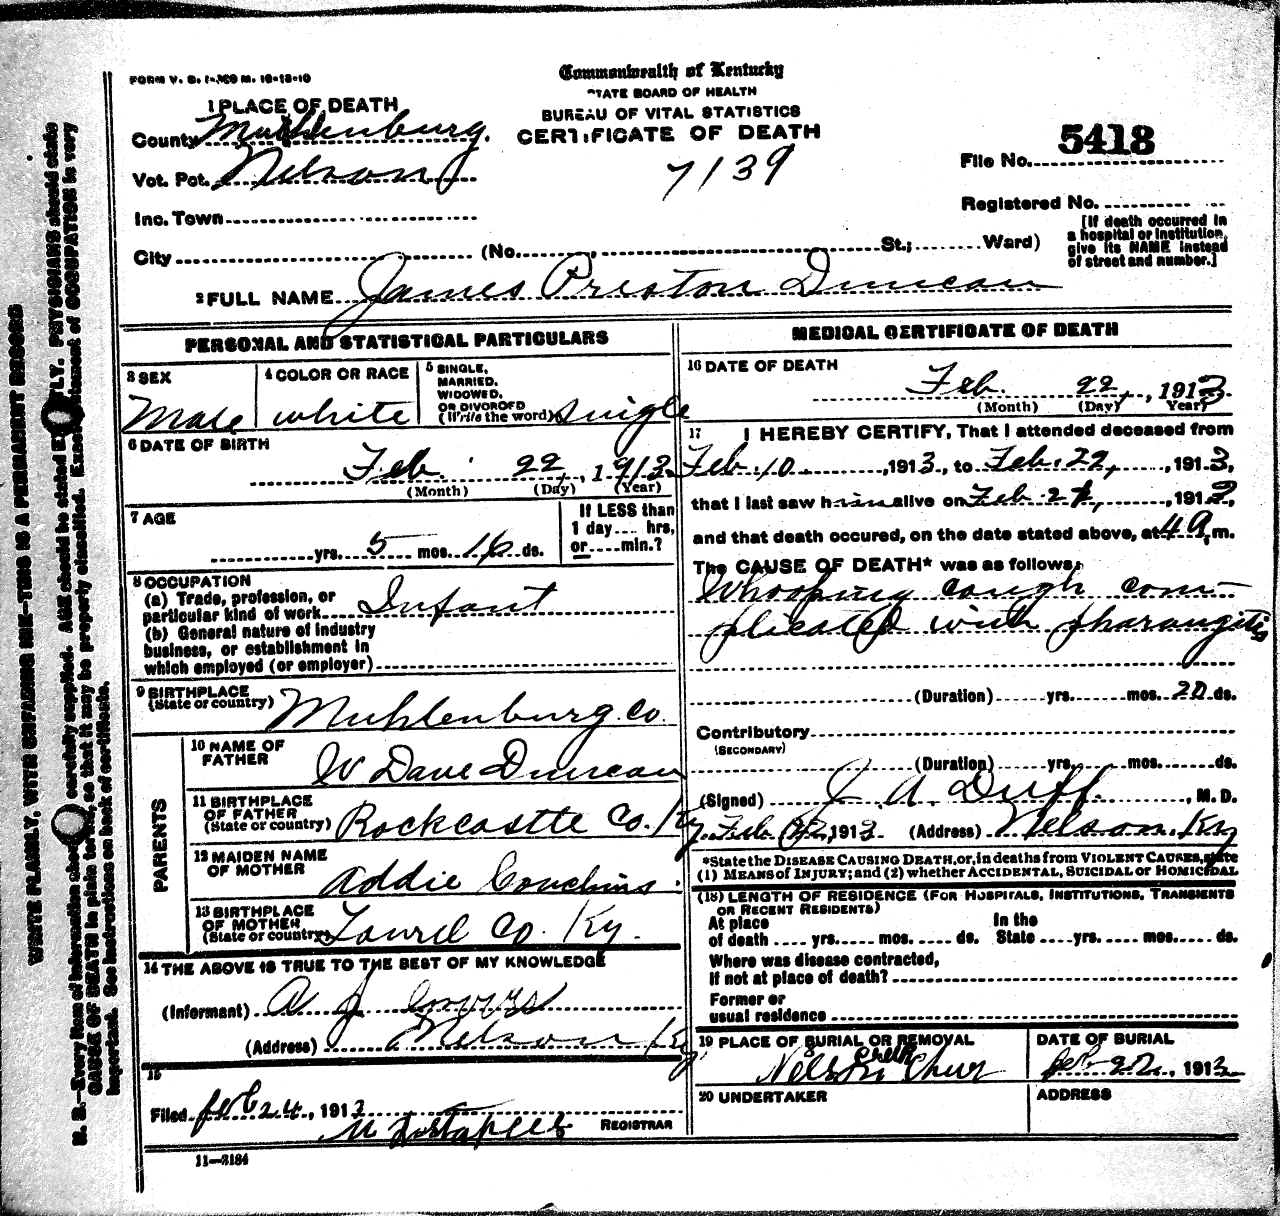 FORM V. S. 1-
Commonwealth of Kentucky
STATE BOARD OF HEALTH
BUREAU OF VITAL STATISTICS
CERTIFICATE OF DEATH
7139
File No. 5418
Registered No.
[If death occurred in
a hospital or institution,
give its NAME instead
of street and number.]
1 PLACE OF DEATH
County Muhlenburg.
Vot. Pct. Nelson
Inc. Town
City (No. St.; Ward)
2 FULL NAME James Preston Duncan
PERSONAL AND STATISTICAL PARTICULARS
3 SEX
Male
4 COLOR OR RACE
white
5 SINGLE,
MARRIED,
WIDOWED,
OR DIVORCED
(Write the word) Single
6 DATE OF BIRTH
Feb. 22, 1913
(Month) (Day) (Year)
7 AGE
yrs. 5 mos. 16 ds.
If LESS than
1 day.... hrs,
or....min.?
8 OCCUPATION
(a) Trade, profession, or
particular kind of work Infant
(b) General nature of industry
business, or establishment in
which employed (or employer)
9 BIRTHPLACE
(State or country) Muhlenburg. Co.
PARENTS
10 NAME OF
FATHER W Dave Duncan
11 BIRTHPLACE
OF FATHER
(State or country) Rockcastle Co. Ky.
12 MAIDEN NAME
OF MOTHER Addie
13 BIRTHPLACE
OF MOTHER
(State or country) Laurel Co. Ky.
14 THE ABOVE IS TRUE TO THE BEST OF MY KNOWLEDGE
(Informant) A J
(Address) Nelson Ky
15
Filed Feb 24, 1913
REGISTRAR
11—3184
MEDICAL CERTIFICATE OF DEATH
16 DATE OF DEATH
Feb. 22, 1913
(Month) (Day) (Year)
17 I HEREBY CERTIFY, That I attended deceased from
Feb 10, 1913, to Feb. 22, 1913,
that I last saw him alive on Feb. 1913,
and that death occured, on the date stated above, at 4 a m.
The CAUSE OF DEATH* was as follows:
Whooping cough com-
plicated with pharangitis
(Duration) yrs. mos. 20 ds.
Contributory
(SECONDARY)
(Duration) yrs. mos. ds.
(Signed) J. A. Duff, M. D.
Feb 22, 1913 (Address) Nelson. Ky
*State the DISEASE CAUSING DEATH, or, in deaths from VIOLENT CAUSES, state
(1) MEANS of INJURY; and (2) whether ACCIDENTAL, SUICIDAL or HOMICIDAL
(18) LENGTH OF RESIDENCE (FOR HOSPITALS, INSTITUTIONS, TRANSIENTS
OR RECENT RESIDENTS)
At place In the
of death .... yrs. mos. ds. State yrs. mos. ds.
Where was disease contracted,
if not at place of death?
Former or
usual residence
19 PLACE OF BURIAL OR REMOVAL
Nelson Creek Chur
DATE OF BURIAL
Feb. 22, 1913
20 UNDERTAKER
ADDRESS
WRITE PLAINLY, WITH UNFADING INK—THIS IS A PERMANENT RECORD
N. B.—Every item of information should be carefully supplied. AGE should be stated EXACTLY. PHYSICIANS should state
CAUSE OF DEATH in plain terms, so that it may be properly classified. Exact statement of OCCUPATION is very
important. See instructions on back of certificate.